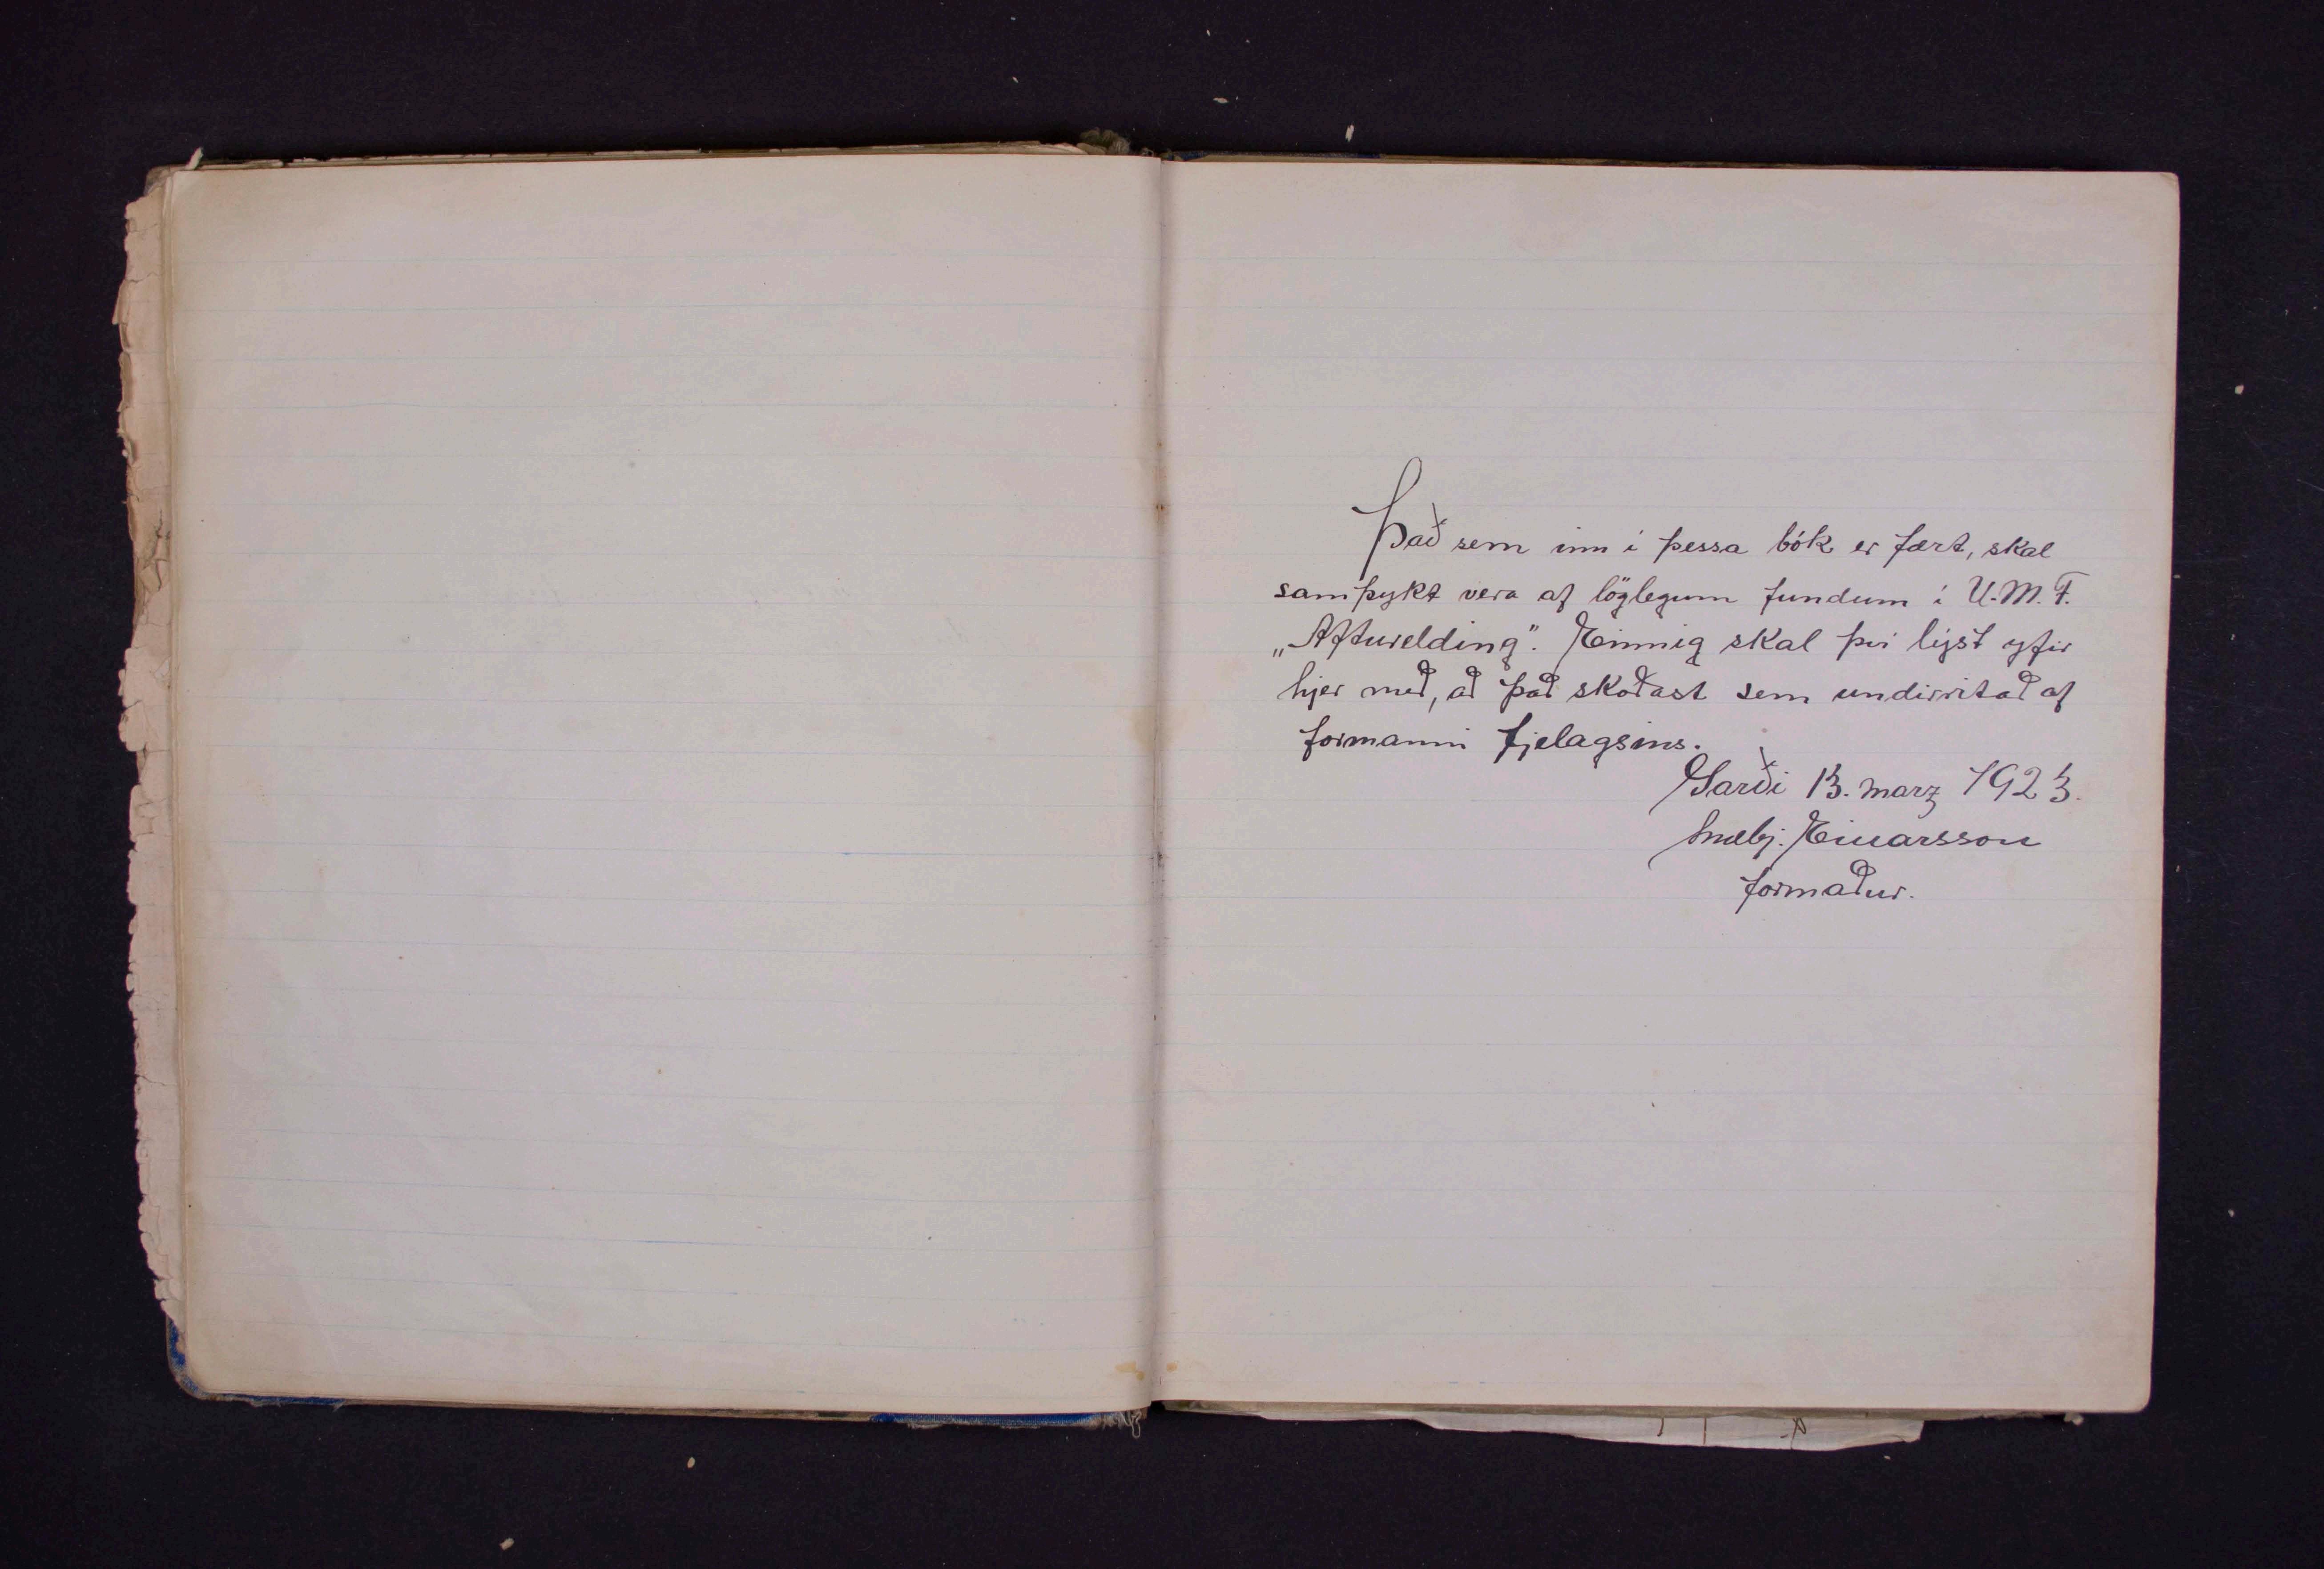 Það sem inn i þessa bók er fært, skal
samþykt vera af löglegum fundum í U.M.F.
„Afturelding". Einnig skal því lýst yfir
hjer með, að það skoðast sem undirritað af
formanni fjelagsins.
Garði 13. marz 1923.
Snæbj. Einarsson
formaður.